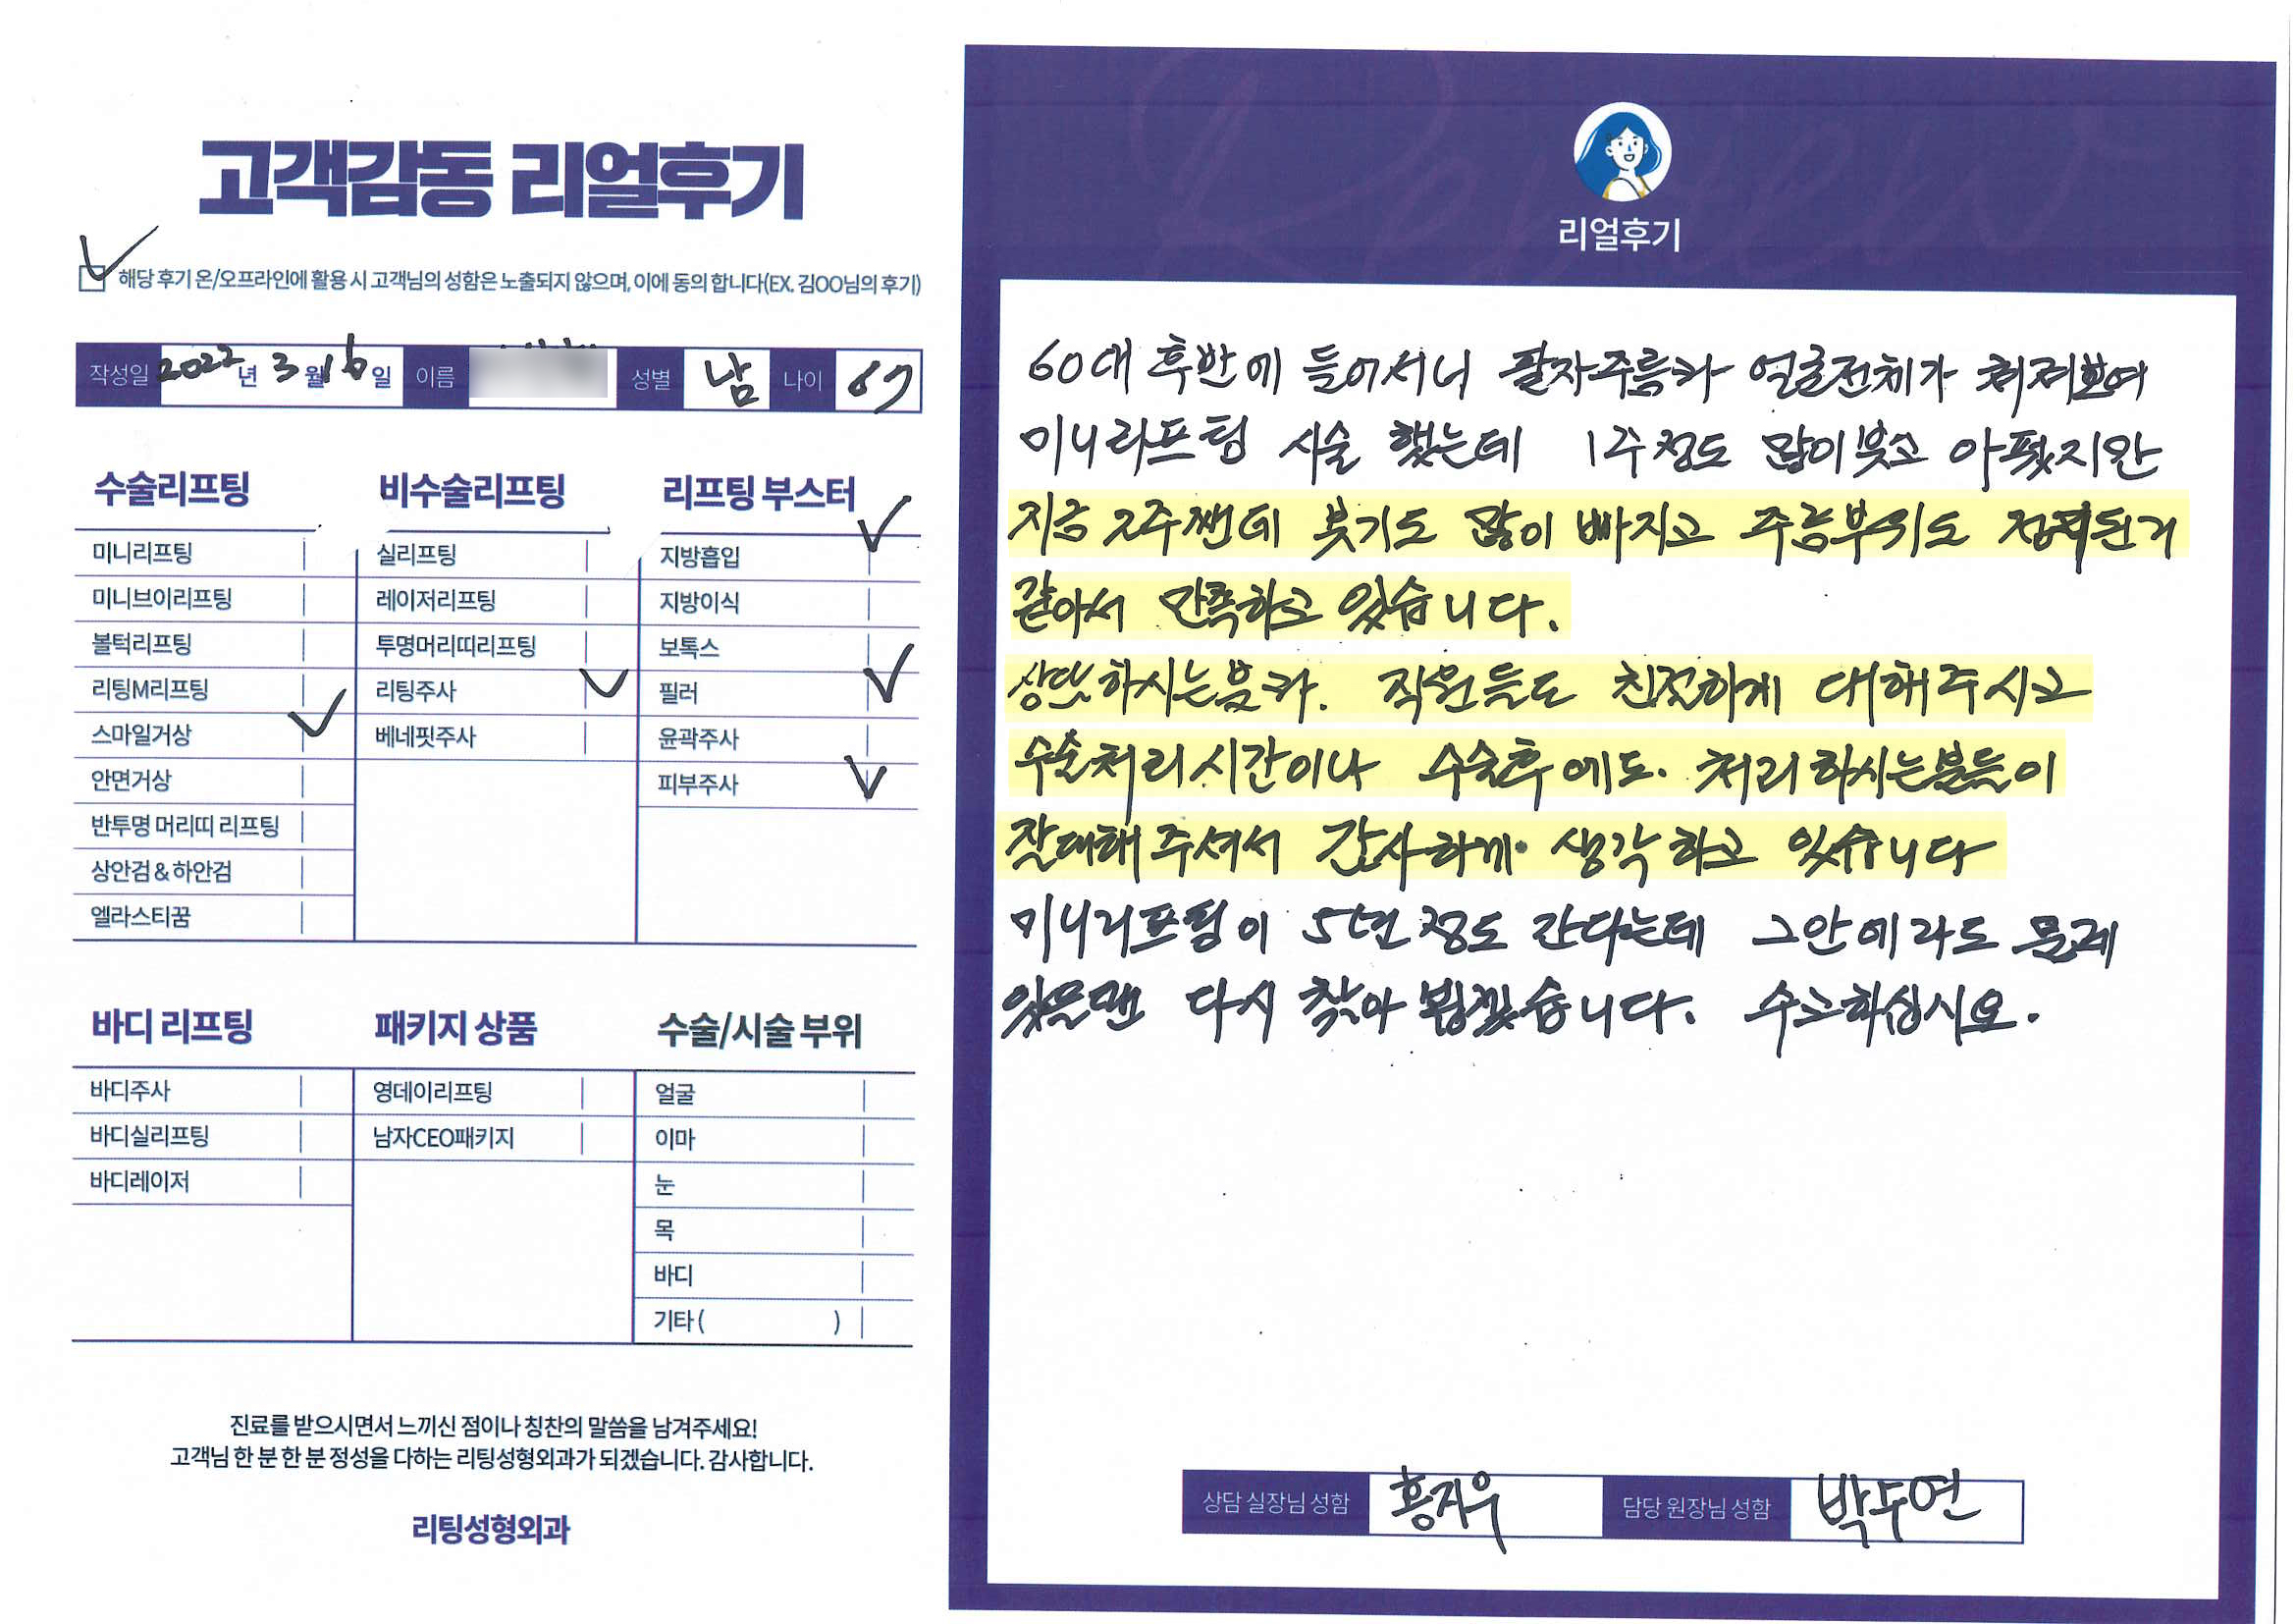 고객감동 리얼후기
해당 후기 온/오프라인에 활용 시 고객님의 성함은 노출되지 않으며, 이에 동의 합니다(EX. 김OO님의 후기)
작성일 2022년 3월 16일 이름 성별 남 나이 67
수술리프팅
미니리프팅
미니브이리프팅
볼턱리프팅
리팅M리프팅
스마일거상
안면거상
반투명 머리띠 리프팅
상안검 & 하안검
엘라스티꿈
비수술리프팅
실리프팅
레이저리프팅
투명머리띠리프팅
리팅주사
베네핏주사
리프팅 부스터
지방흡입
지방이식
보톡스
필러
윤곽주사
피부주사
바디 리프팅
바디주사
바디실리프팅
바디레이저
패키지 상품
영데이리프팅
남자CEO패키지
수술/시술 부위
얼굴
이마
눈
목
바디
기타 ( )
진료를 받으시면서 느끼신 점이나 칭찬의 말씀을 남겨주세요!
고객님 한 분 한 분 정성을 다하는 리팅성형외과가 되겠습니다. 감사합니다.
리팅성형외과
리얼후기
60대 후반에 들어서니 팔자주름과 얼굴전체가 쳐져보여
미니리프팅 시술 했는데 1주정도 많이붓고 아팠지만
지금 2주짼데 붓기도 많이 빠지고 주름부위도 정리된거
같아서 만족하고 있습니다.
상담하시는분과. 직원들도 친절하게 대해주시고
수술처리시간이나 수술후에도. 처리하시는분들이
잘대해주셔서 감사하게 생각하고 있습니다
미니리프팅이 5년정도 간다는데 그안에라도 문제
있으면 다시 찾아 뵙겠습니다. 수고하십시요.
상담 실장님 성함 홍지우
담당 원장님 성함 박두연